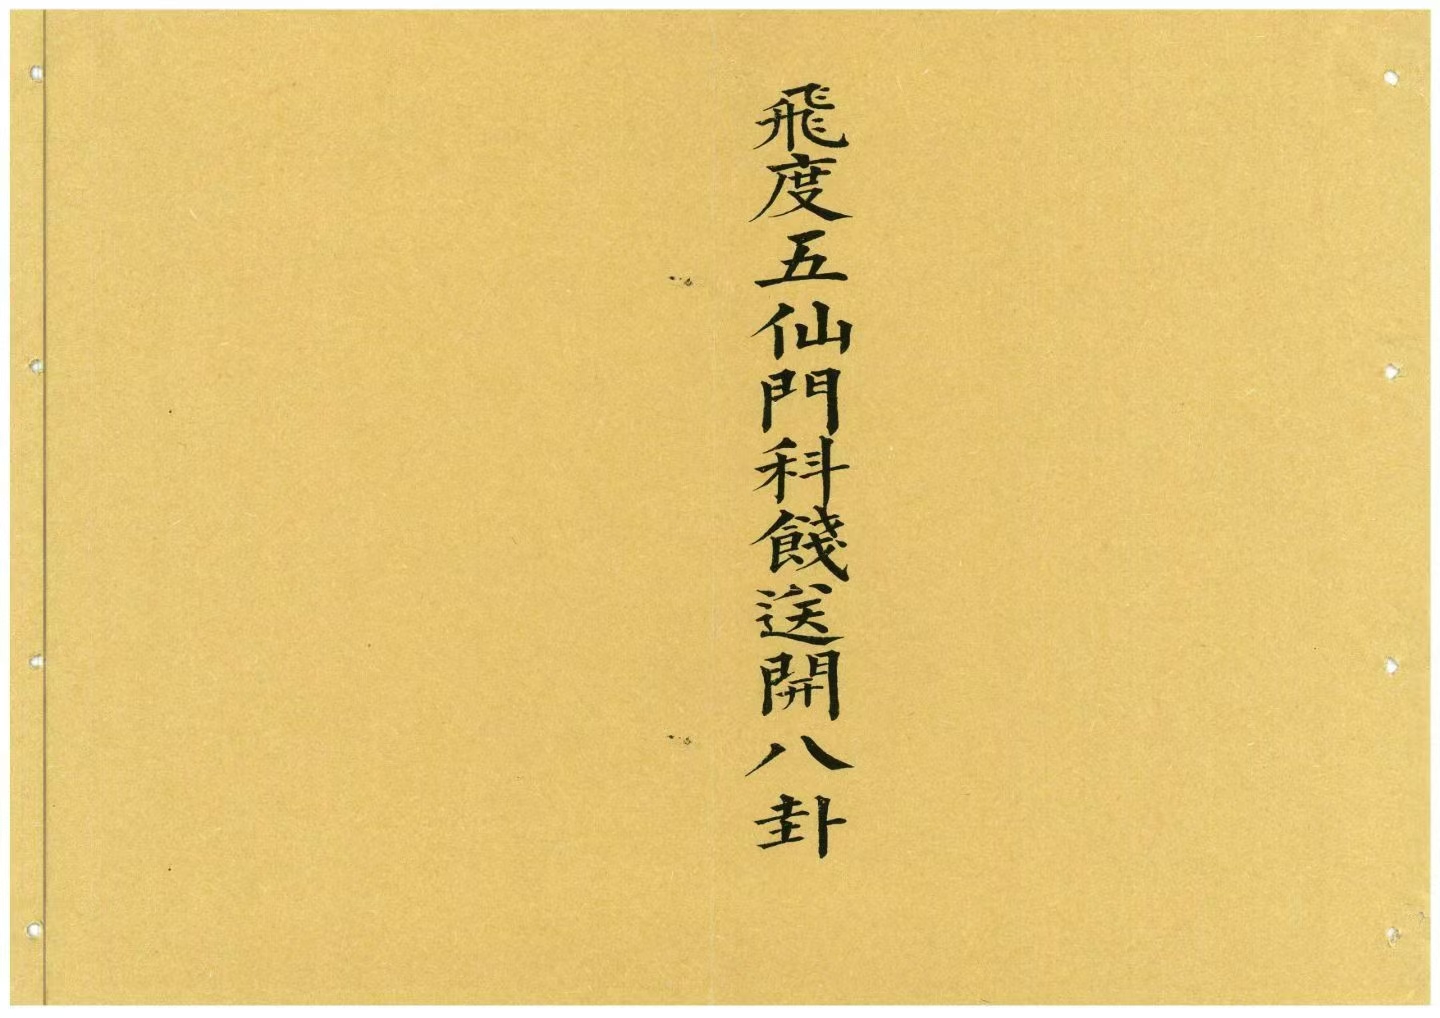 飛度五仙門科餞送開八卦